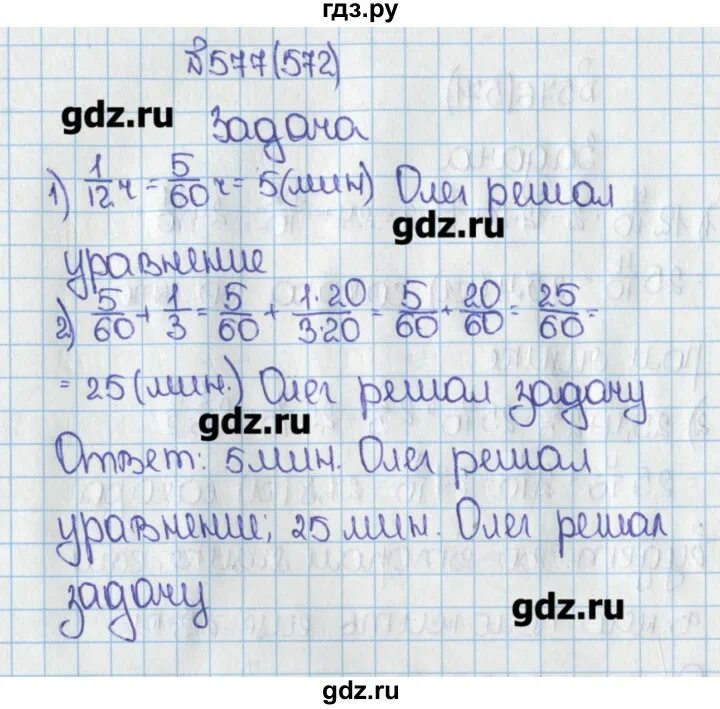 гдз.ру
№577(572)
gdz.ru
Задача
1) 1/12 ч = 5/60 ч = 5(мин) Олег решал
gdz.ru
уравнение
2) 5/60 + 1/3 = 5/60 + 1·20/3·20 = 5/60 + 20/60 = 25/60 =
= 25(мин.) Олег решал задачу
gdz.ru
Ответ: 5мин. Олег решал
уравнение; 25 мин. Олег решал
задачу
gdz.ru
gdz.ru